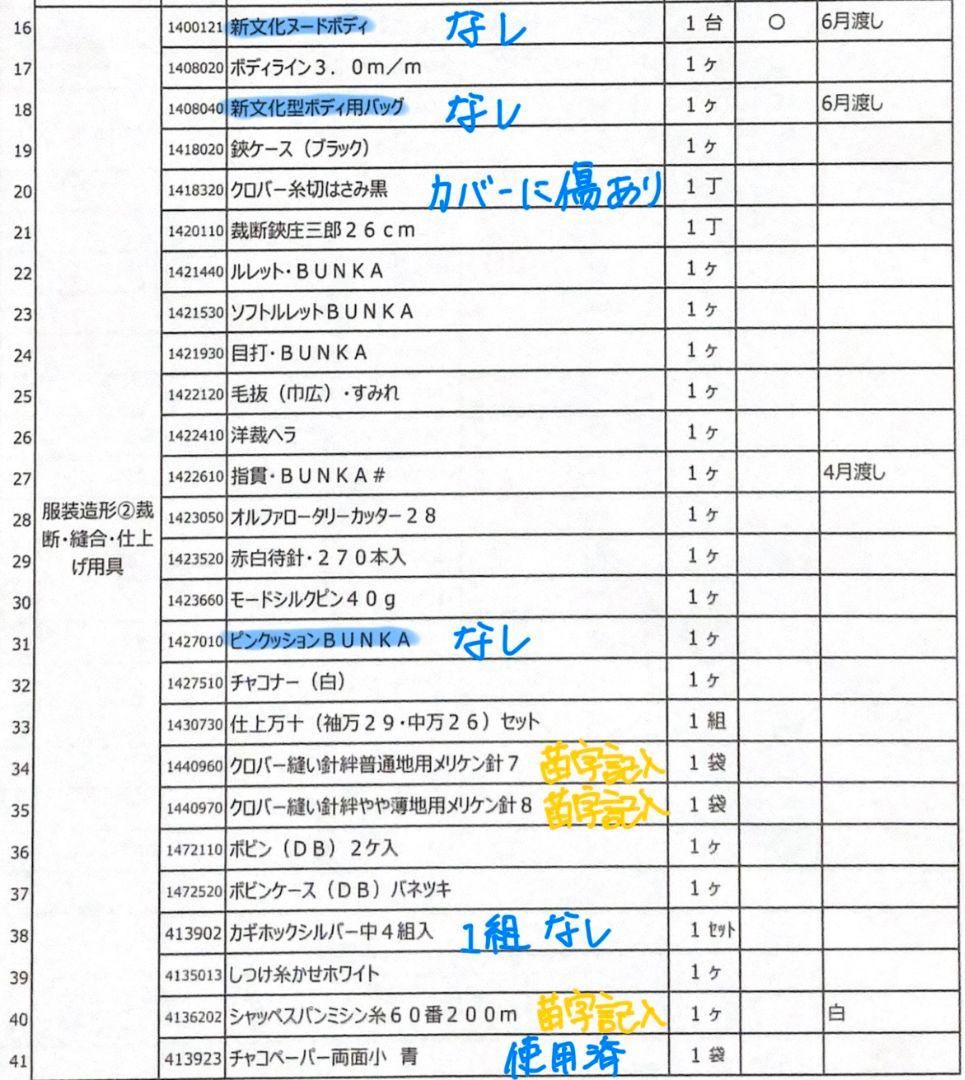 16 1400121 新文化ヌードボディ なし 1 台 ○ 6月渡し
17 1408020 ボディライン3．0m／m 1 ヶ
18 1408040 新文化型ボディ用バッグ なし 1 ヶ 6月渡し
19 1418020 鋏ケース（ブラック） 1 ヶ
20 1418320 クロバー糸切はさみ黒 カバーに傷あり 1 丁
21 1420110 裁断鋏庄三郎26cm 1 丁
22 1421440 ルレット・BUNKA 1 ヶ
23 1421530 ソフトルレットBUNKA 1 ヶ
24 1421930 目打・BUNKA 1 ヶ
25 1422120 毛抜（巾広）・すみれ 1 ヶ
26 1422410 洋裁ヘラ 1 ヶ
27 1422610 指貫・BUNKA＃ 1 ヶ 4月渡し
服装造形②裁
断・縫合・仕上
げ用具
28 1423050 オルファロータリーカッター28 1 ヶ
29 1423520 赤白待針・270本入 1 ヶ
30 1423660 モードシルクピン40g 1 ヶ
31 1427010 ピンクッションBUNKA なし 1 ヶ
32 1427510 チャコナー（白） 1 ヶ
33 1430730 仕上万十（袖万29・中万26）セット 1 組
34 1440960 クロバー縫い針絆普通地用メリケン針7 苗字記入 1 袋
35 1440970 クロバー縫い針絆やや薄地用メリケン針8 苗字記入 1 袋
36 1472110 ボビン（DB）2ケ入 1 ヶ
37 1472520 ボビンケース（DB）バネツキ 1 ヶ
38 413902 カギホックシルバー中4組入 1組 なし 1 セット
39 4135013 しつけ糸かせホワイト 1 ヶ
40 4136202 シャッペスパンミシン糸60番200m 苗字記入 1 ヶ 白
41 413923 チャコペーパー両面小 青 使用済 1 袋